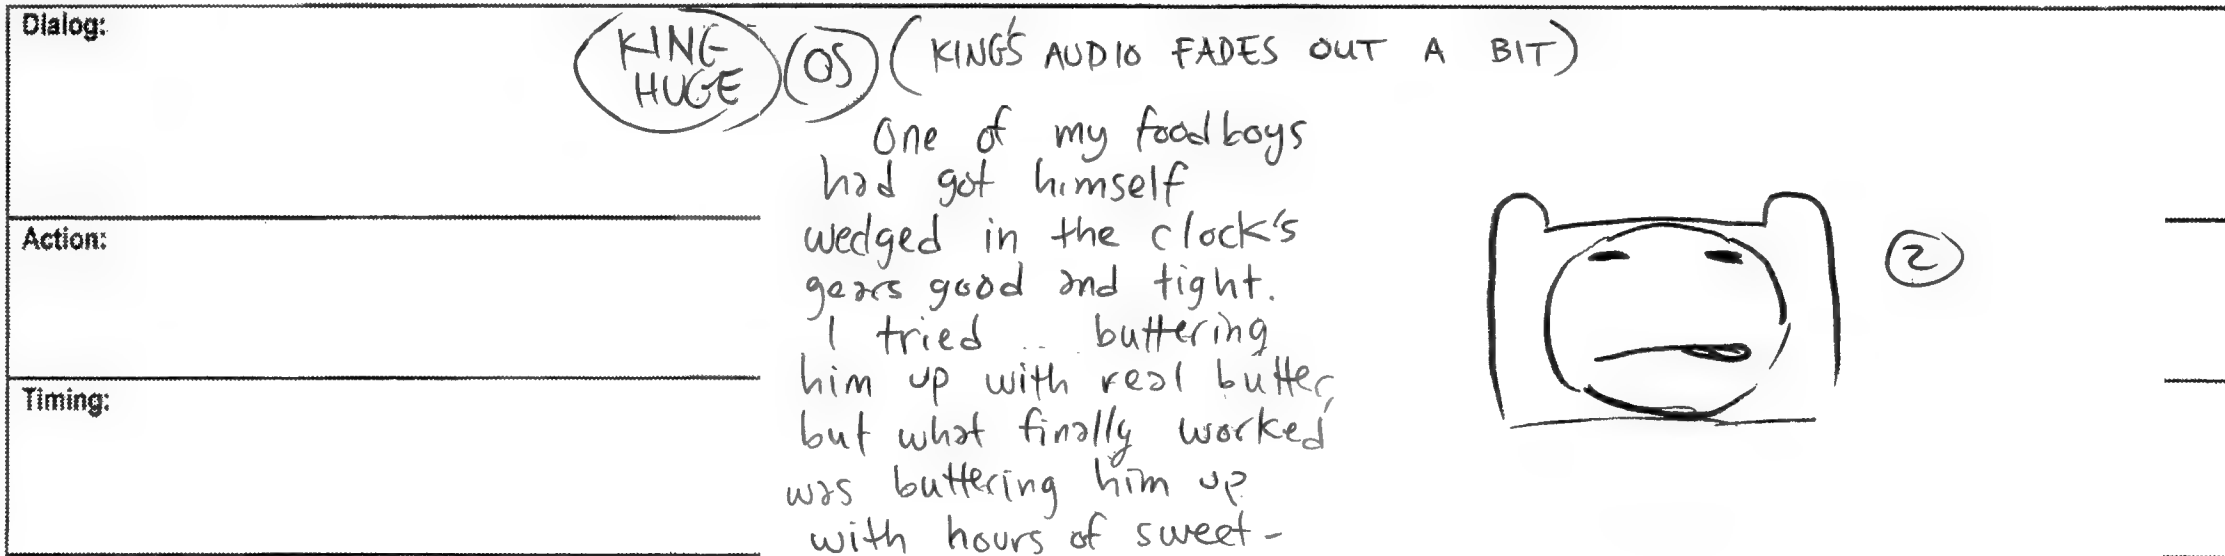 Dialog:
KING HUGE OS (KING'S AUDIO FADES OUT A BIT)
One of my foodboys
had got himself
wedged in the clock's
gears good and tight.
I tried .. buttering
him up with real butter,
but what finally worked
was buttering him up
with hours of sweet-
Action:
2
Timing: